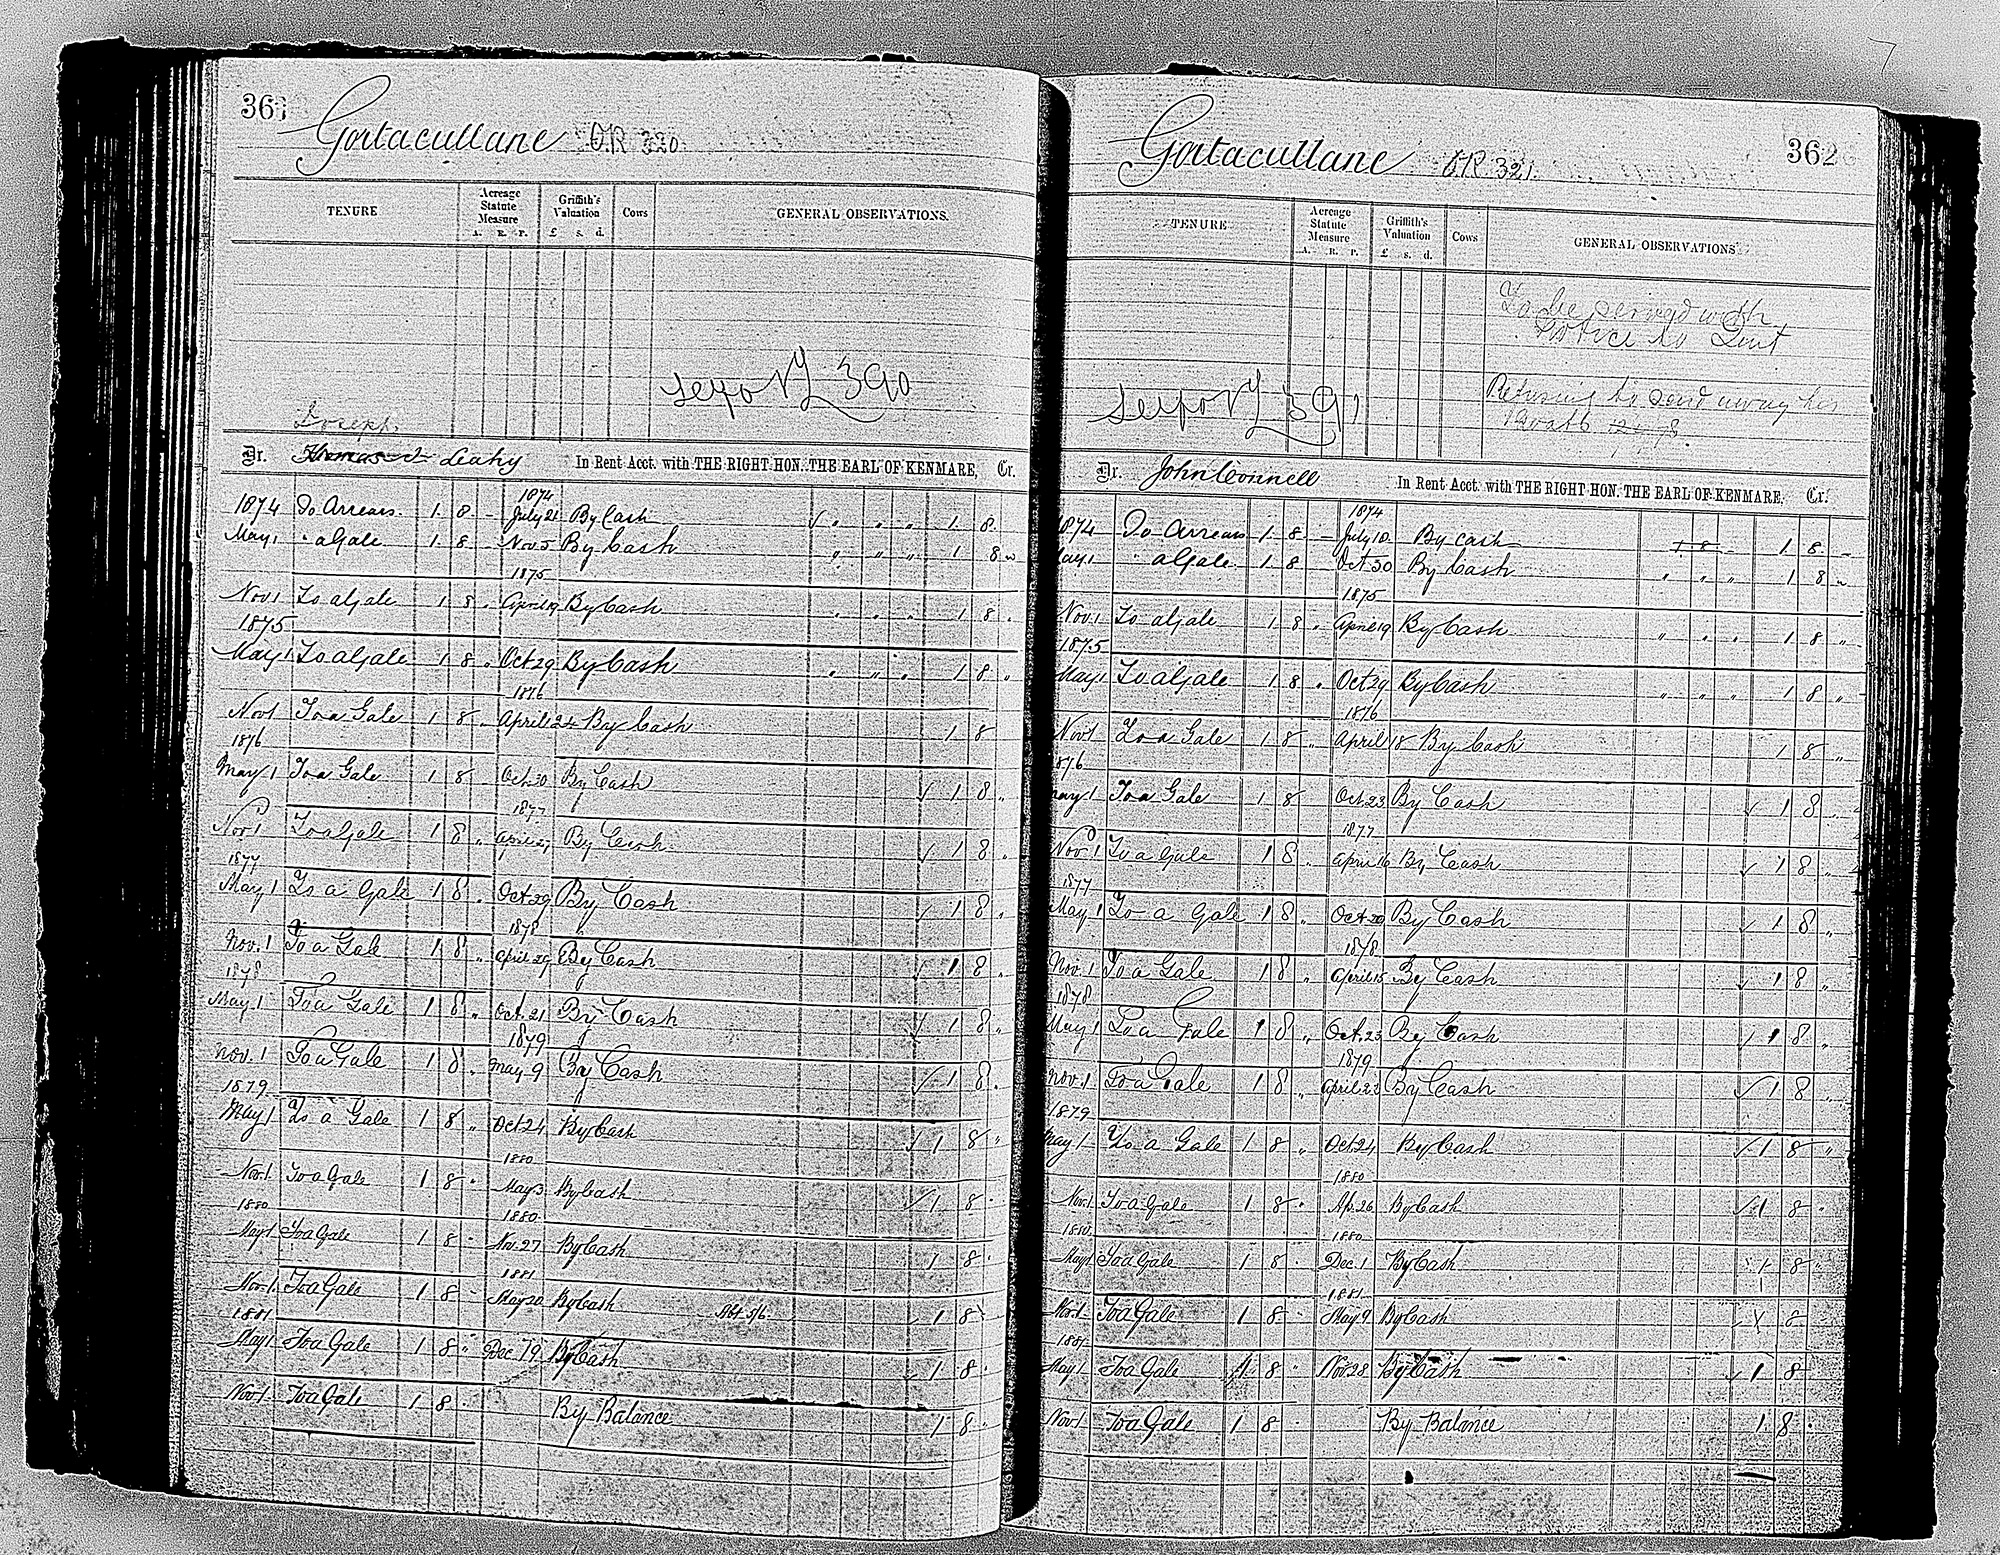 361
Gortacullane O.R 320
TENURE Acreage Statute Measure A. R. P. Griffith's Valuation £ s. d. Cows GENERAL OBSERVATIONS.
390
Joseph
Dr. Thomas Leahy In Rent Acct. with THE RIGHT HON. THE EARL OF KENMARE, Cr.
1874 To Arrears 1 8 - 1874 July 21 By Cash " " " 1 8
May 1 " a Gale 1 8 - Nov. 5 By Cash " " " 1 8 "
1875
Nov 1 To a Gale 1 8 " April 19 By Cash " " " 1 8 "
1875
May 1 To a Gale 1 8 " Oct 29 By Cash " " " 1 8 "
1876
Nov 1 To a Gale 1 8 " April 24 By Cash 1 8
1876
May 1 To a Gale 1 8 - Oct 30 By Cash 1 8 "
1877
Nov 1 To a Gale 1 8 " April 27 By Cash 1 8 "
1877
May 1 To a Gale 1 8 " Oct 29 By Cash 1 8 "
1878
Nov. 1 To a Gale 1 8 " April 29 By Cash 1 8 "
1878
May 1 To a Gale 1 8 " Oct. 21 By Cash 1 8 "
1879
Nov. 1 To a Gale 1 8 " May 9 By Cash 1 8 "
1879
May 1 To a Gale 1 8 " Oct 24 By Cash 1 8 "
1880
Nov. 1 To a Gale 1 8 " May 3 By Cash 1 8 "
1880 1880
May 1 To a Gale 1 8 " Nov. 27 By Cash 1 8 "
1881
Nov. 1 To a Gale 1 8 - May 20 By Cash 1 8
1881
May 1 To a Gale 1 8 " Dec 19 By Cash 1 8 "
Nov 1 To a Gale 1 8 " By Balance 1 8 "
362
Gortacullane O.R 321.
TENURE Acreage Statute Measure A. R. P. Griffith's Valuation £ s. d. Cows GENERAL OBSERVATIONS.
To be served with
Notice to Quit
391
Refusing to send away his
Dr. John Connell In Rent Acct. with THE RIGHT HON. THE EARL OF KENMARE, Cr.
1874 To Arrears 1 8 - 1874 July 10 By Cash 1 8 1 8 -
May 1 " a Gale 1 8 Oct 30 By Cash " " " 1 8 "
1875
Nov. 1 To a Gale 1 8 " April 19 By Cash " " " 1 8 "
1875
May 1 To a Gale 1 8 " Oct 29 By Cash " " " 1 8 "
1876
Nov 1 To a Gale 1 8 " April 18 By Cash 1 8 "
1876
May 1 To a Gale 1 8 Oct. 23 By Cash 1 8 "
1877
Nov. 1 To a Gale 1 8 April 16 By Cash 1 8 "
1877
May 1 To a Gale 1 8 " Oct. 29 By Cash 1 8 "
1878
Nov. 1 To a Gale 1 8 " April 15 By Cash 1 8 "
1878
May 1 To a Gale 1 8 " Oct. 23 By Cash 1 8 "
1879
Nov. 1 To a Gale 1 8 " April 22 By Cash 1 8 "
1879
May 1 To a Gale 1 8 " Oct 24 By Cash 1 8 "
1880
Nov. 1 To a Gale 1 8 " Ap. 26 By Cash 1 8 "
1880 1880
May 1 To a Gale 1 8 " Dec. 1 By Cash 1 8 "
1881
Nov. 1 To a Gale 1 8 " May 9 By Cash 1 8
1881
May 1 To a Gale 1 8 " Nov. 28 By Cash 1 8
Nov 1 To a Gale 1 8 " By Balance 1 8 "